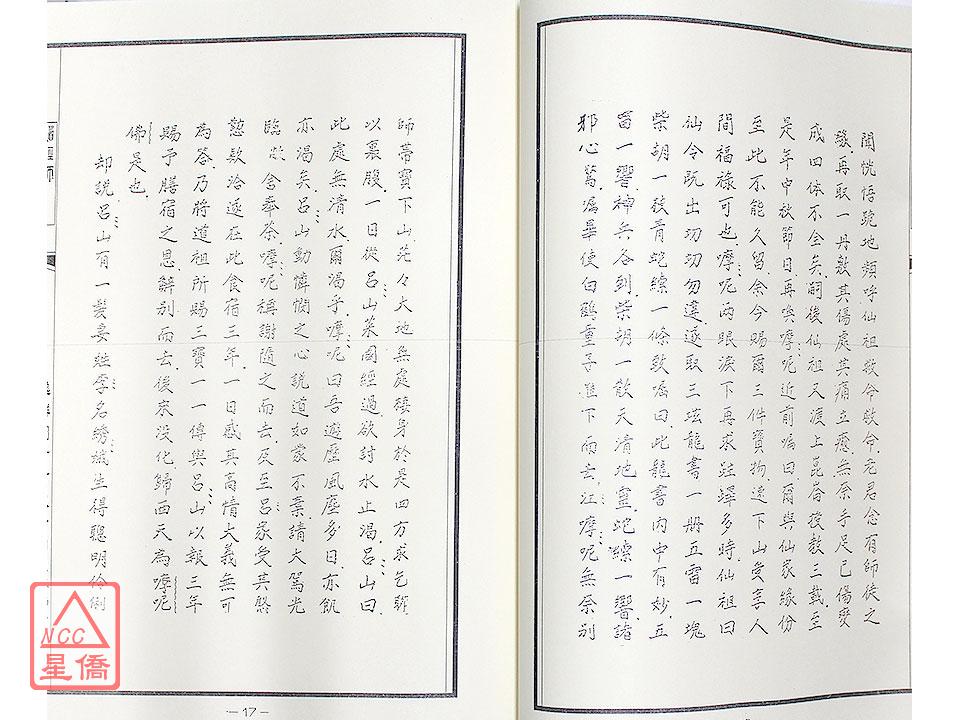 聞恍悟跪地頻呼仙祖救命救命老君念有師徒之
再取一丹敷其傷處其痛立癒.無奈手足已傷變
成四体不全矣.嗣後仙祖又渡上崑崙後教三載.至
是年中秋節日再喚嚤呢近前嘱曰.爾與仙家緣份
至此不能久留.余今賜爾三件寶物.送下山受享人
間福祿可也.嚤呢两眼淚下再求多時.仙祖曰
仙令既出.切切勿違.遂取三玹龍書一册.五雷一塊
柴胡一枝青蛇繚一條致嘱曰.此龍書内中有妙.五
雷一響神兵各到.柴胡一散天清地靈.蛇繚一響諸
邪心篤.嘱畢使白鶴童子進下而去.江嚤呢無奈別
師帶寶下山.茫々大地無處棲身.於是四方求乞聊
以裹腹.一日從呂山菜園經過欲討水止渴.呂山曰
此處無清水爾渴乎.嚤呢曰吾遊歷風塵多日.亦飢
亦渴矣.呂山動憐憫之心說道如蒙不棄請大駕光
臨敝舍奉茶.嚤呢稱謝隨之而去.及至呂家受其殷
懃欵洽.遂在此食宿三年.一日感其高情大義無可
為答.乃將道祖所賜三寶一一傳與呂山以報三年
賜予膳宿之恩.辭別而去.後來没化歸西天為嚤呢
佛是也.
却說.呂山有一髮妻姓李名綉娥.生得聰明伶俐
－17－
NCC
星僑